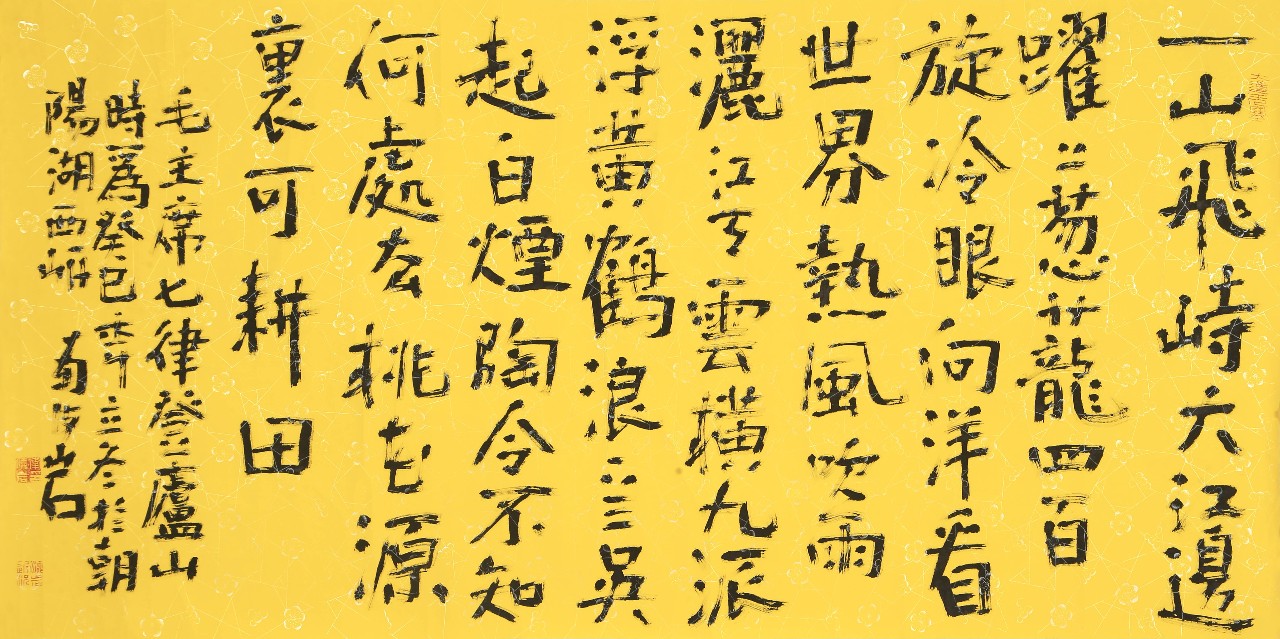 一山飛峙大江邊
躍上葱蘢四百
旋冷眼向洋看
世界熱風吹雨
灑江天雲橫九派
浮黃鶴浪下三吳
起白煙陶令不知
何處去桃花源
裏可耕田
毛主席七律登廬山
時爲癸巳秊立冬於朝
陽湖西